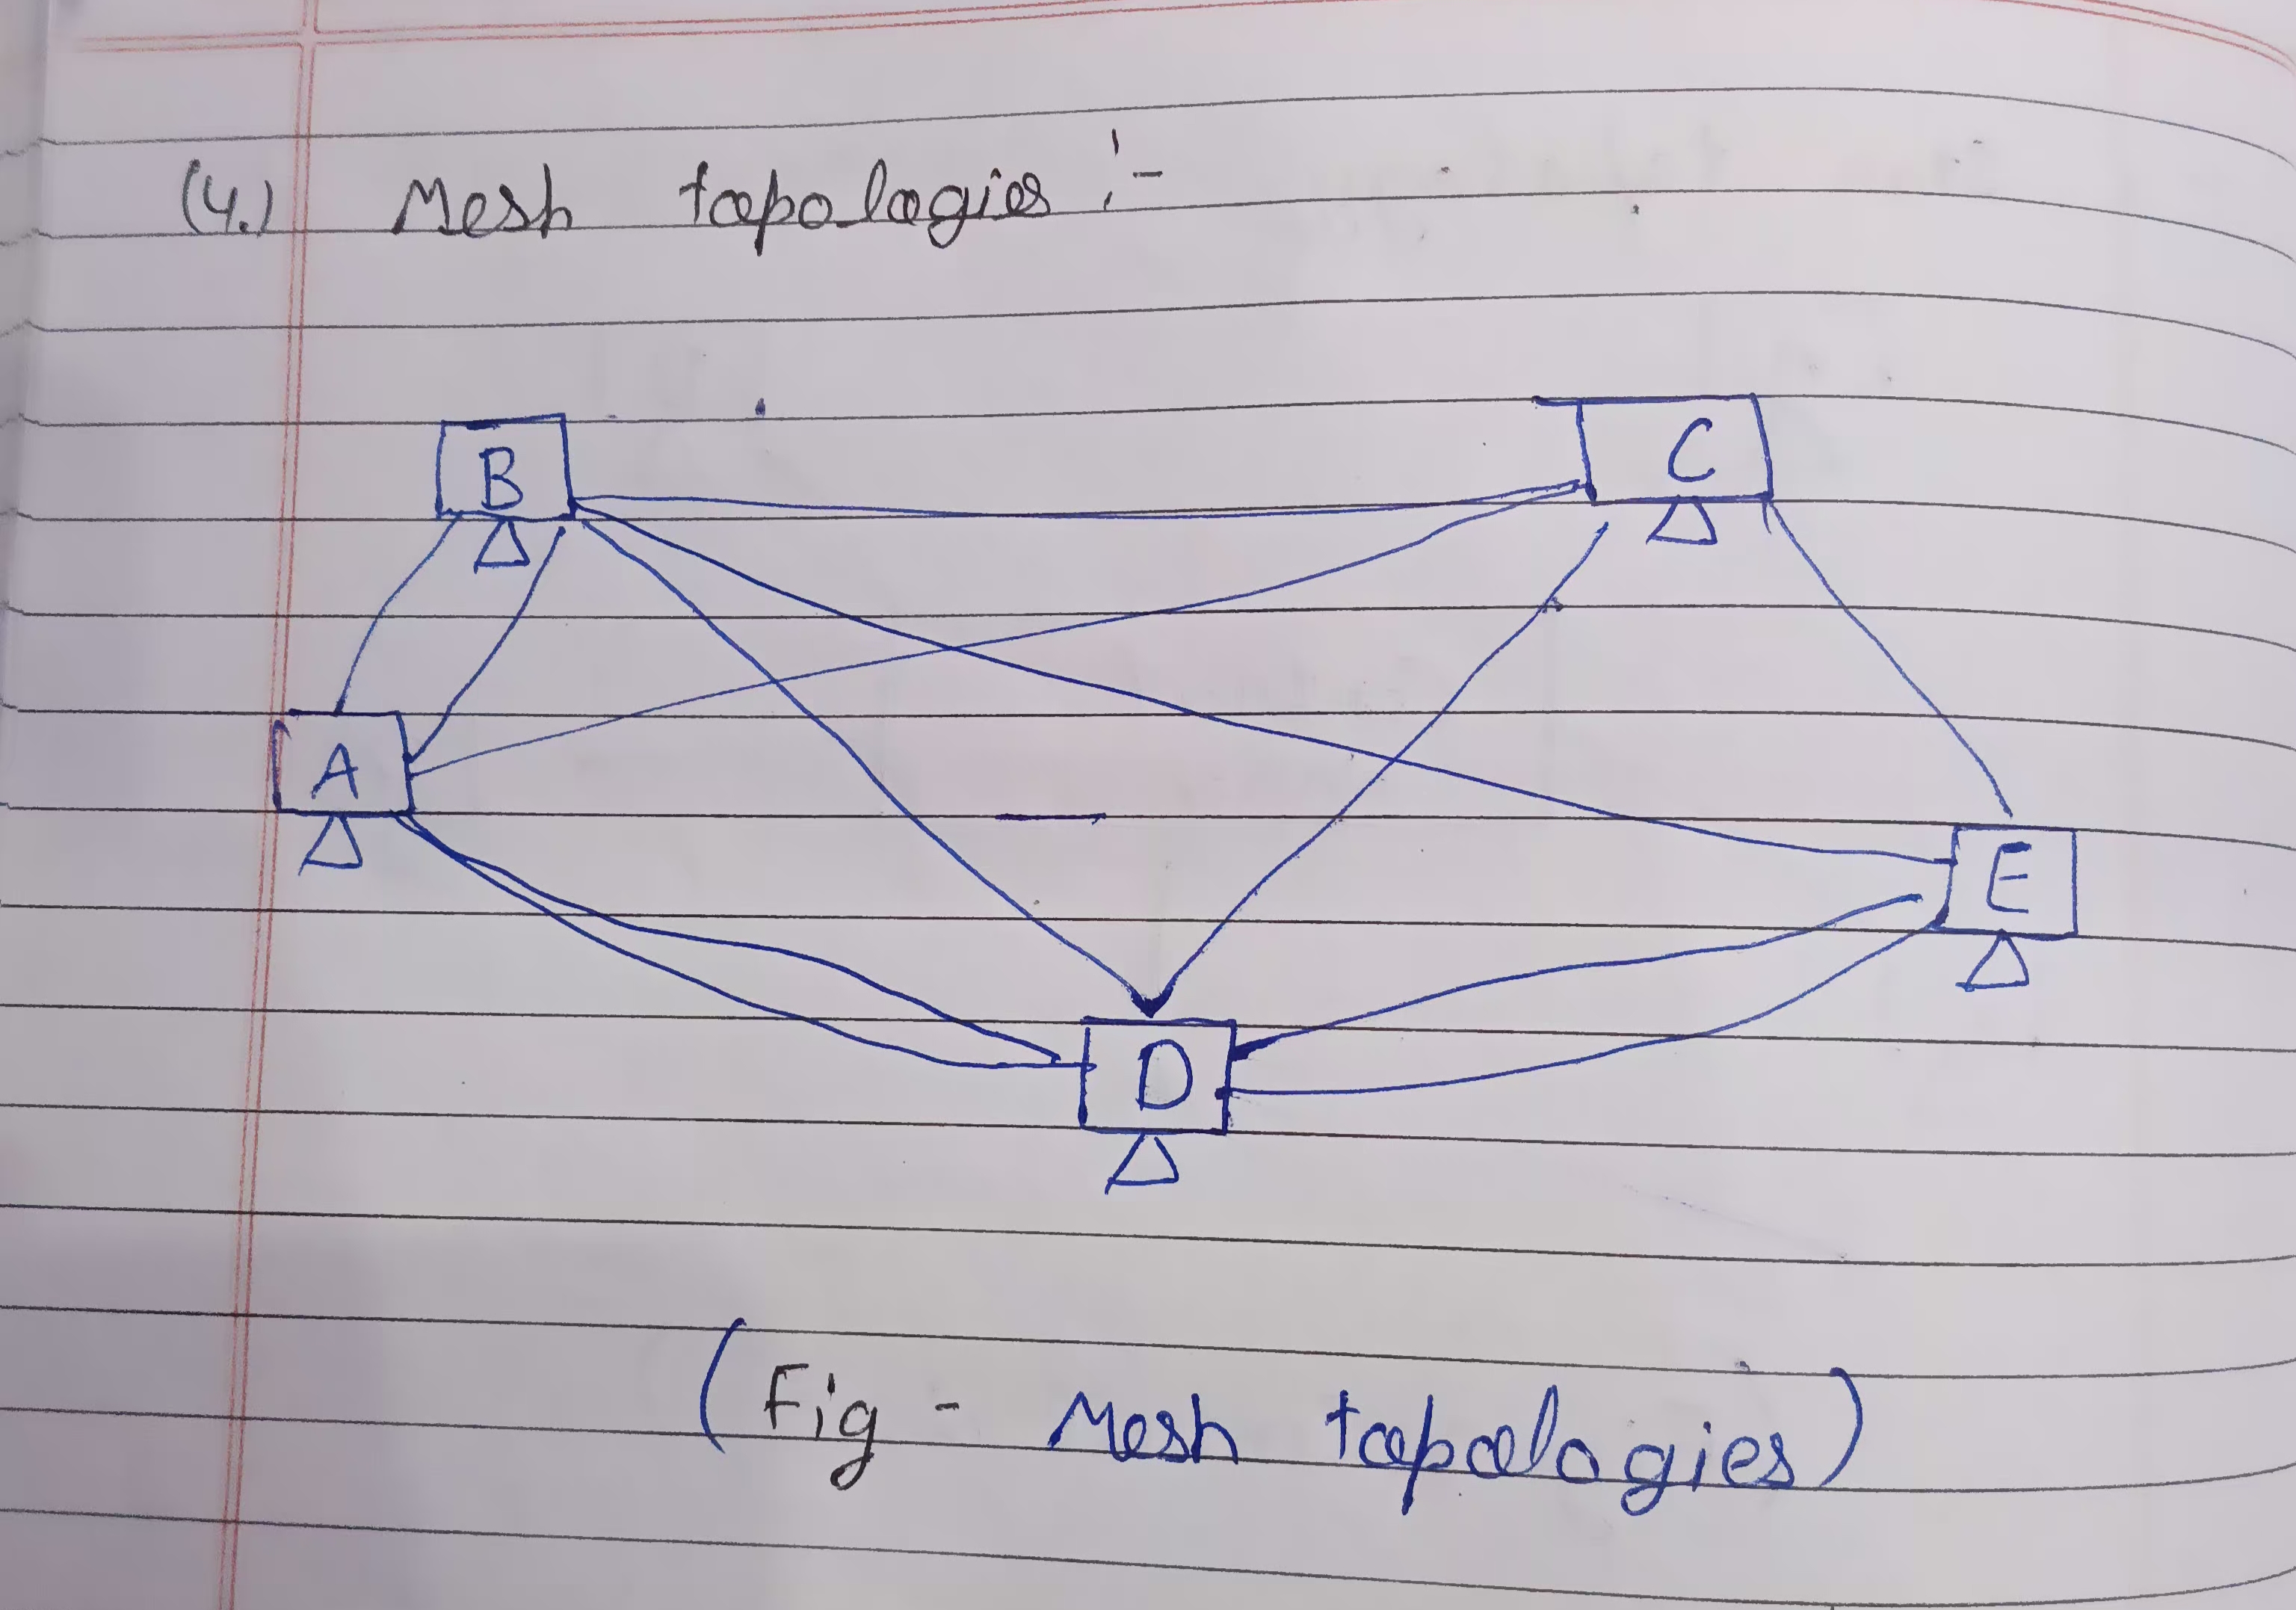 (4.) Mesh topologies :-
B
C
A
E
D
(Fig - Mesh topologies)